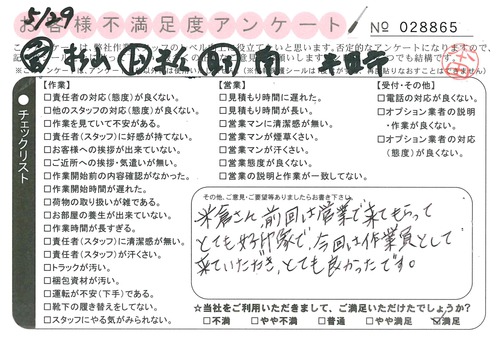 5/29
お客様不満足度アンケート
№ 028865
チェックリスト
【作業】
□責任者の対応(態度)が良くない。
□他のスタッフの対応(態度)が良くない。
□作業を見ていて不安がある。
□責任者(スタッフ)に好感が持てない。
□お客様への挨拶が出来ていない。
□ご近所への挨拶・気遣いが無い。
□作業開始前の内容確認がなかった。
□作業開始時間が遅れた。
□荷物の取り扱いが雑である。
□お部屋の養生が出来ていない。
□作業時間が長すぎる。
□責任者(スタッフ)に清潔感が無い。
□責任者(スタッフ)が汗くさい。
□トラックが汚い。
□梱包資材が汚い。
□運転が不安(下手)である。
□靴下の履き替えをしてない。
□スタッフにやる気がみられない。
【営業】
□見積もり時間に遅れた。
□見積もり時間が長い。
□営業マンに清潔感が無い。
□営業マンが煙草くさい。
□営業マンが汗くさい。
□営業態度が良くない。
□営業の説明と作業が一致してない。
【受付・その他】
□電話の対応が良くない。
□オプション業者の説明
・作業が良くない。
□オプション業者の対応
(態度)が良くない。
その他、ご意見・ご要望等ありましたらお書き下さい。
米倉さん、前回は営業で来てもらって
とても好印象で、今回は作業員として
来ていただき、とても良かったです。
☆当社をご利用いただきまして、ご満足いただけたでしょうか?
□不満 □やや不満 □普通 □やや満足 □満足